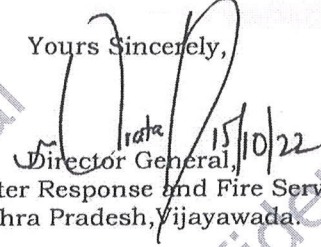 Yours Sincerely,
15/10/22
Director General,
ter Response and Fire Serv
hra Pradesh,Vijayawada.